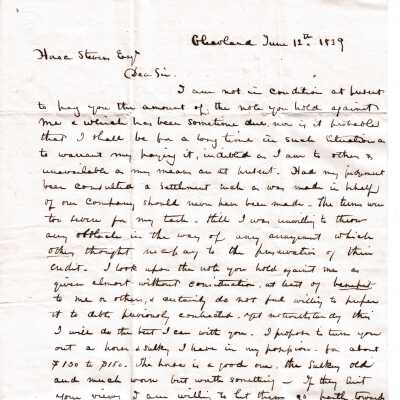 Cleveland June 12th 1839
Stevens Esqr
Dear Sir.
I am not in condition at present
to pay you the amount of the note you hold against
me & which has been sometime due, nor is it probable
that I shall be for a long time in such situation as
to warrant my paying it, indebted as I am to others &
unavailable as my means are at present. Had my judgment
been consulted a settlement such as was made in behalf
of our Company should never have been made. The terms were
too severe for my task. Still I was unwilling to throw
any obstacle in the way of any arrangement which
others thought necessary to the preservation of their
credit. I look upon the note you hold against me as
given almost without consideration, at least of benefit
to me or others, & certainly do not feel willing to prefer
it to debts previously contracted. Yet notwithstanding this
I will do the best I can with you. I propose to turn you
out a horse & sulky I have in my possession for about
$130 to $150. The horse is a good one. the Sulky old
and much worn but worth something — If they suit
your views I am willing to let them go partly towards